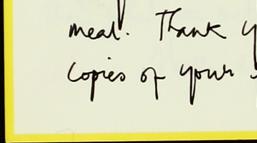 meal. Thank y
Copies of your